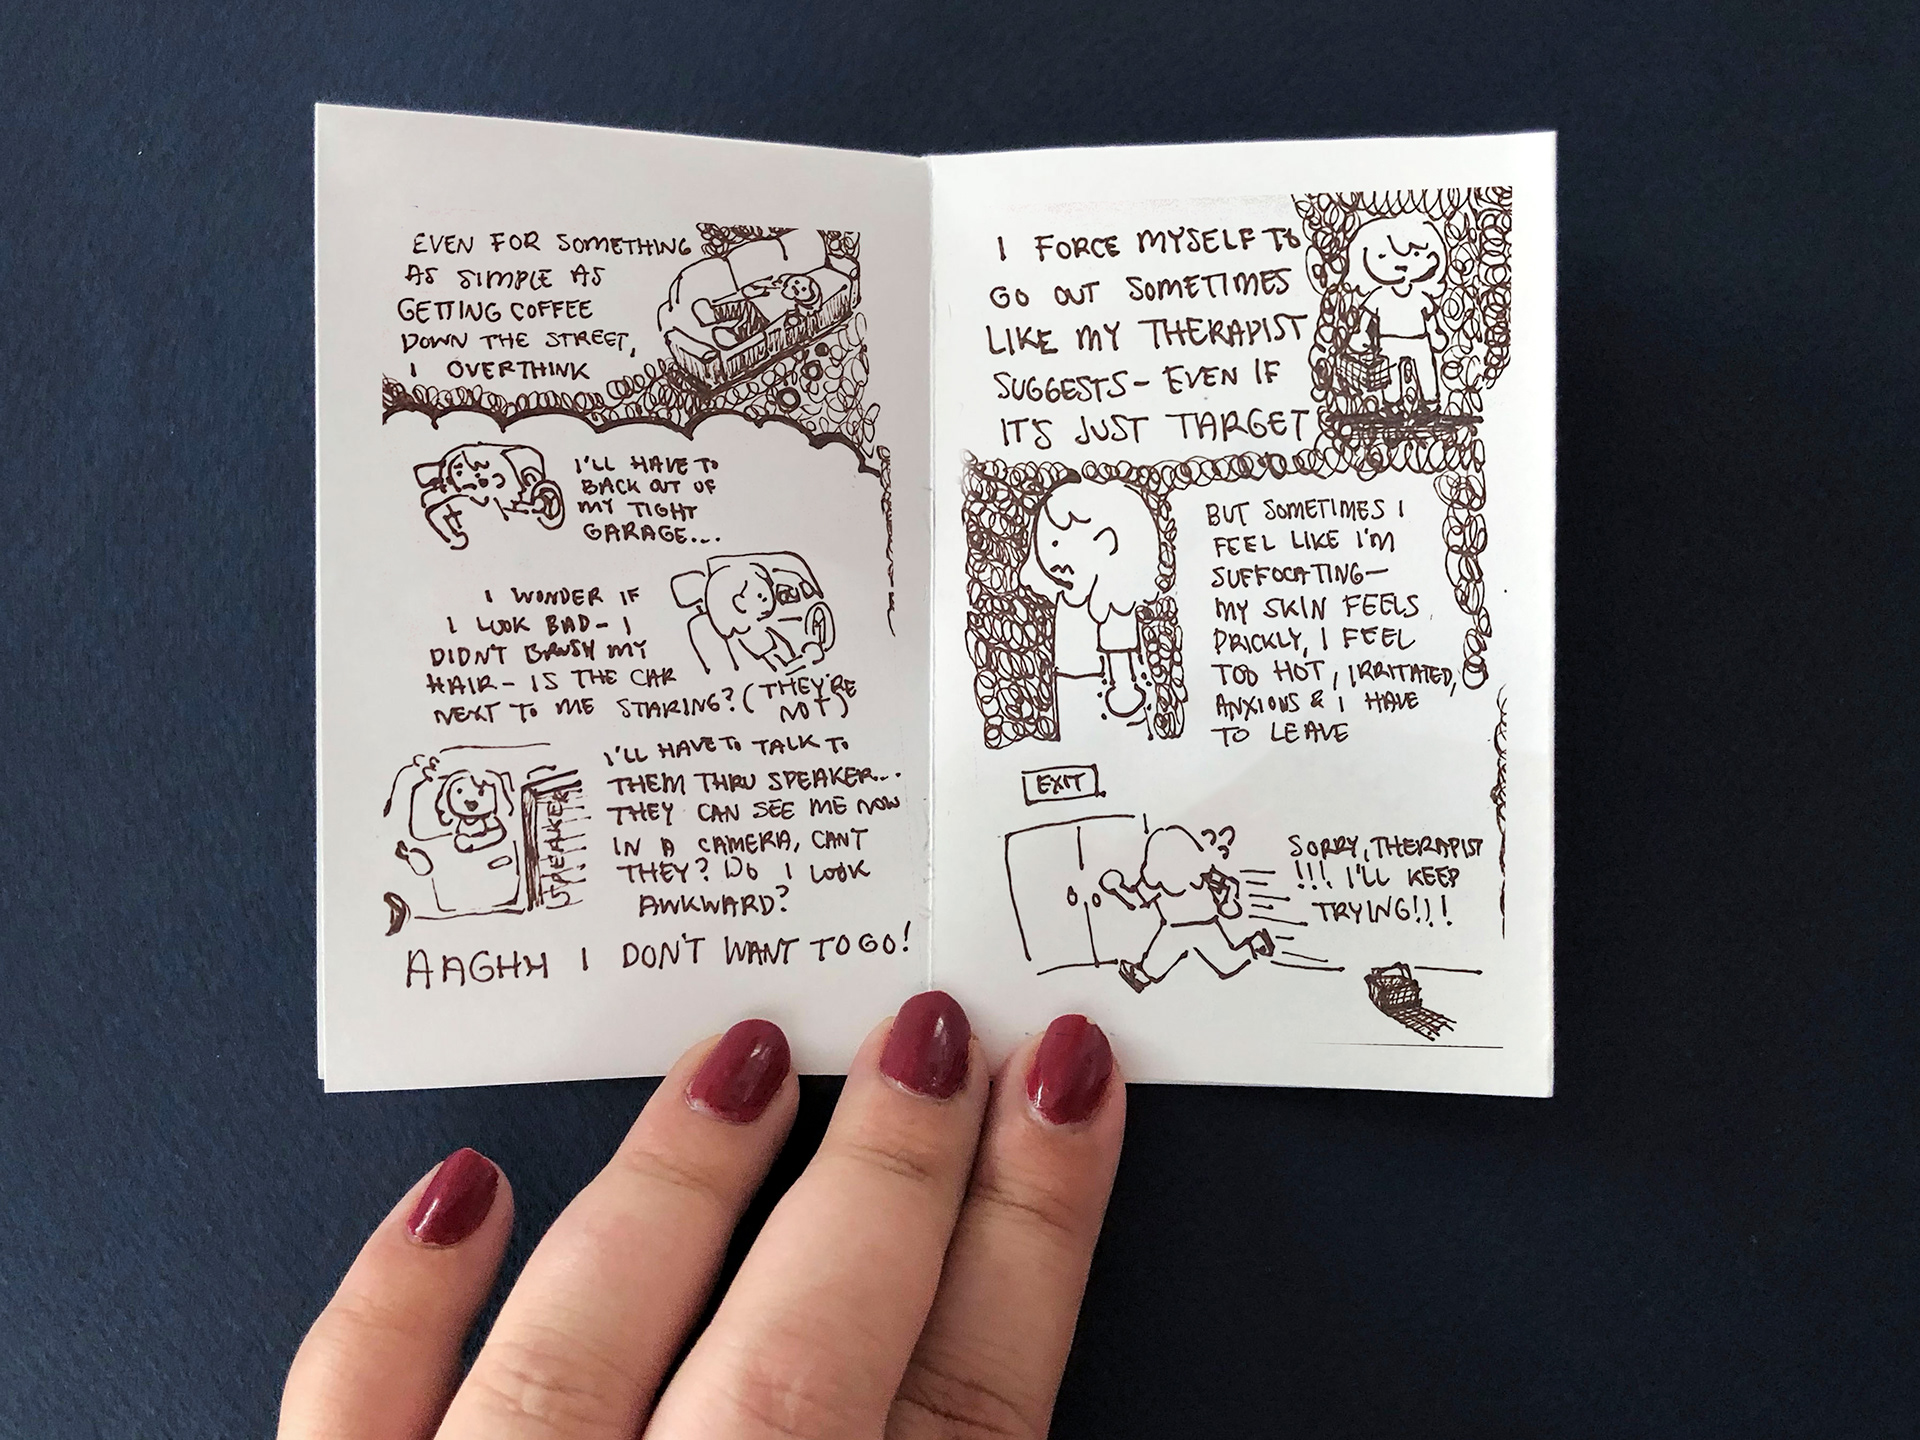 EVEN FOR SOMETHING
AS SIMPLE AS
GETTING COFFEE
DOWN THE STREET,
I OVERTHINK
I'LL HAVE TO
BACK OUT OF
MY TIGHT
GARAGE...
I WONDER IF
I LOOK BAD- I
DIDN'T BRUSH MY
HAIR- IS THE CAR
NEXT TO ME STARING? (THEY'RE
NOT)
I'LL HAVE TO TALK TO
THEM THRU SPEAKER...
THEY CAN SEE ME NOW
IN A CAMERA, CANT
THEY? DO I LOOK
AWKWARD?
SPEAKER
AAGHH I DON'T WANT TO GO!
I FORCE MYSELF TO
GO OUT SOMETIMES
LIKE MY THERAPIST
SUGGESTS- EVEN IF
IT'S JUST TARGET
BUT SOMETIMES I
FEEL LIKE I'M
SUFFOCATING-
MY SKIN FEELS
PRICKLY, I FEEL
TOO HOT, IRRITATED,
ANXIOUS & I HAVE
TO LEAVE
EXIT
??
SORRY, THERAPIST
!!! I'LL KEEP
TRYING!!!